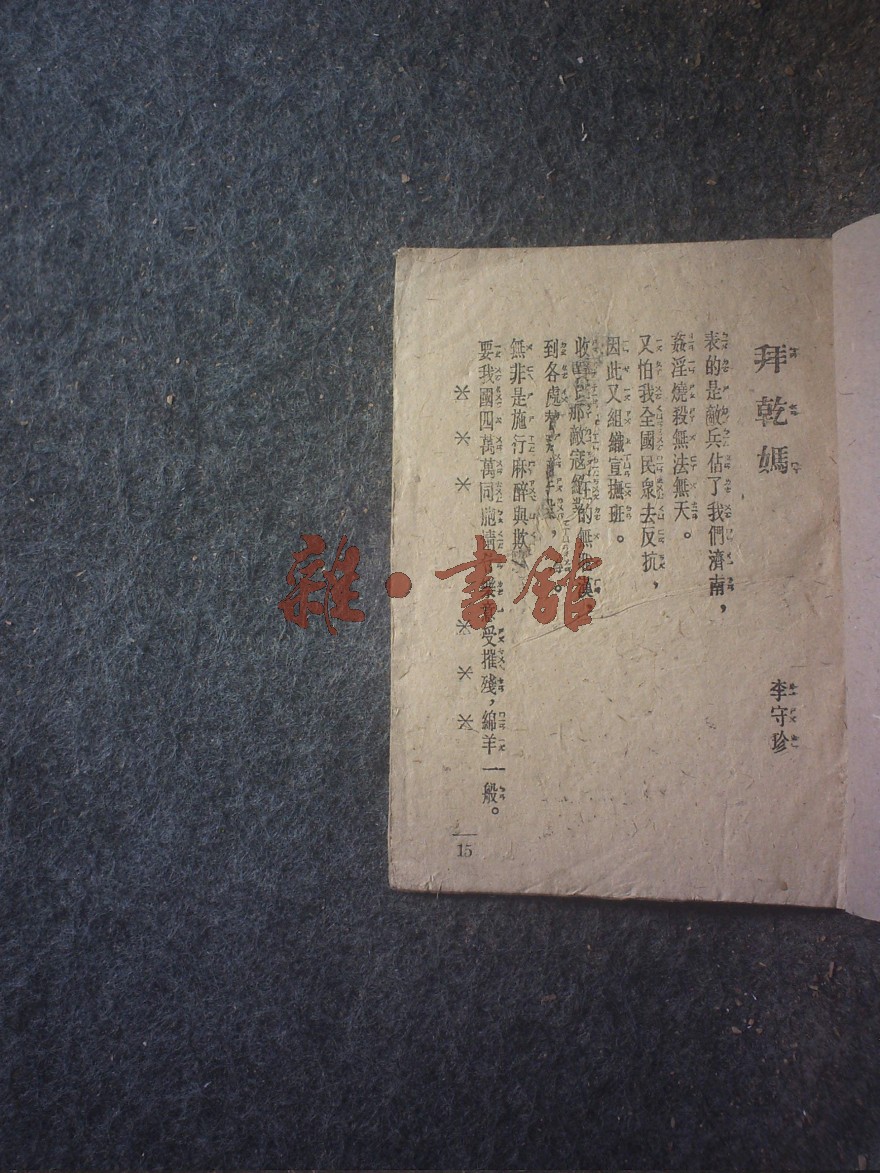 拜乾媽
李守珍
表的是敵兵佔了我們濟南，
姦淫燒殺無法無天。
又怕我全國民衆去反抗，
因此又組織宣撫班。
收那敵寇的無漢，
到各處，。
無非是施行麻醉與欺
要我國四萬萬同胞受摧殘，綿羊一般。
＊＊＊＊＊＊
15
雜·書館